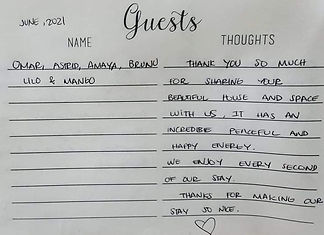 JUNE, 2021
Guests
NAME
THOUGHTS
OMAR, ASTRID, AMAYA, BRUNO
LILO & MANGO
THANK YOU SO MUCH
FOR SHARING YOUR
BEAUTIFUL HOUSE AND SPACE
WITH US, IT HAS AN
INCREDIBLE PEACEFUL AND
HAPPY ENERGY.
WE ENJOY EVERY SECOND
OF OUR STAY.
THANKS FOR MAKING OUR
STAY SO NICE.